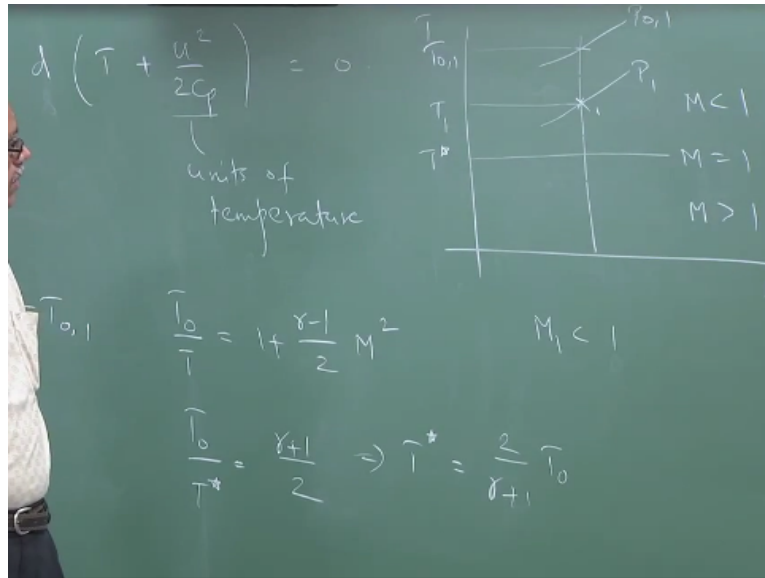 d ( T + u² / 2Cp ) = 0
units of
temperature
T
T0,1
T1
T*
P0,1
P1
1
M < 1
M = 1
M > 1
T0,1
T0 / T = 1 + γ-1 / 2 M²
M1 < 1
T0 / T* = γ+1 / 2 ⇒ T* = 2 / γ+1 T0